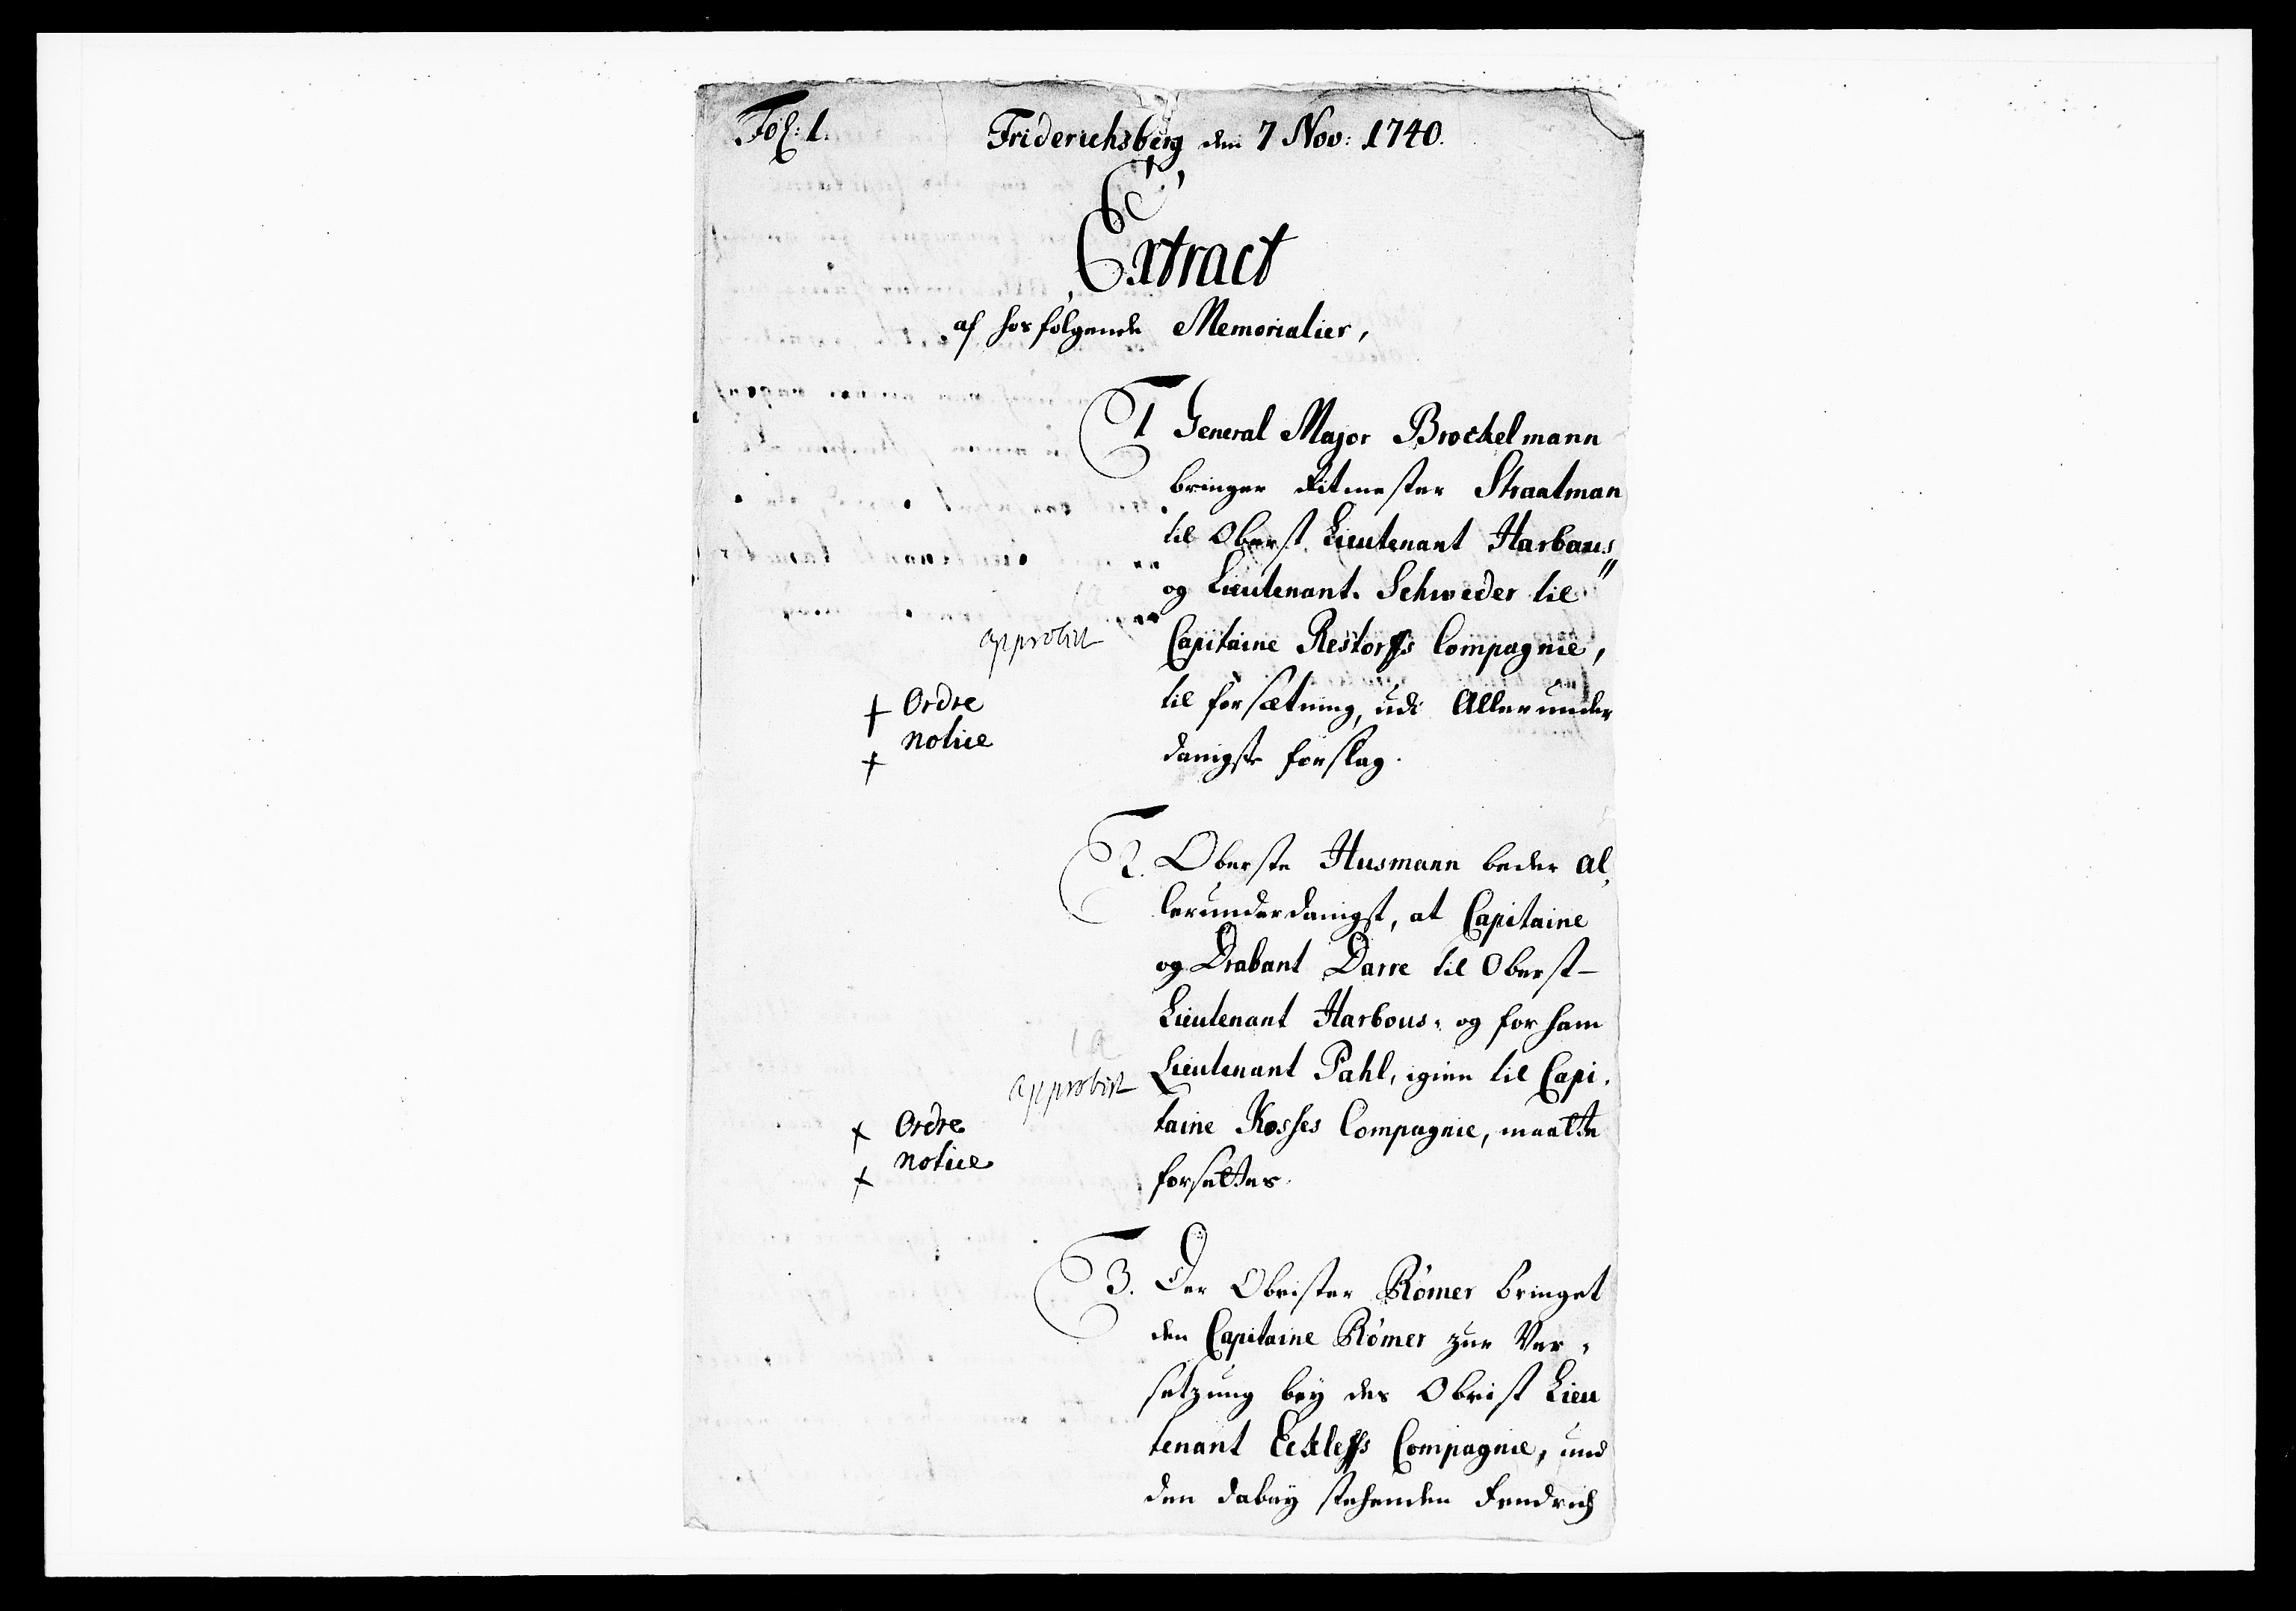 Fol: 1.
Friderichsberg den 7 Nov: 1740.
Extract
af hosfølgende Memorialier,
1 General Major Brockelmann
bringer Ritmester Straatman
til Oberst Lieutenant Harbaus,,
og Lieutenant Schweder til
Capitaine Restorffs Compagnie,
til forsætning, udi Allerunder
danigste forslag.
approbirt
+ Ordre
+ notice
2. Oberste Husmann beder al,
lerunderdanigst, at Capitaine
og Drabant Darre til Oberst-
Lieutenant Harbous, og for ham
Lieutenant Pahl, igien til Capi,
taine Kosses Compagnie, maatte
forsættes.
approbirt
+ Ordre
+ notice
3. Der Obrister Römer bringet
den Capitaine Römer zur Ver,
setzung bey des Obrist Lieu
tenant Eckleffs Compagnie, und
den dabey stehenden Fendrich